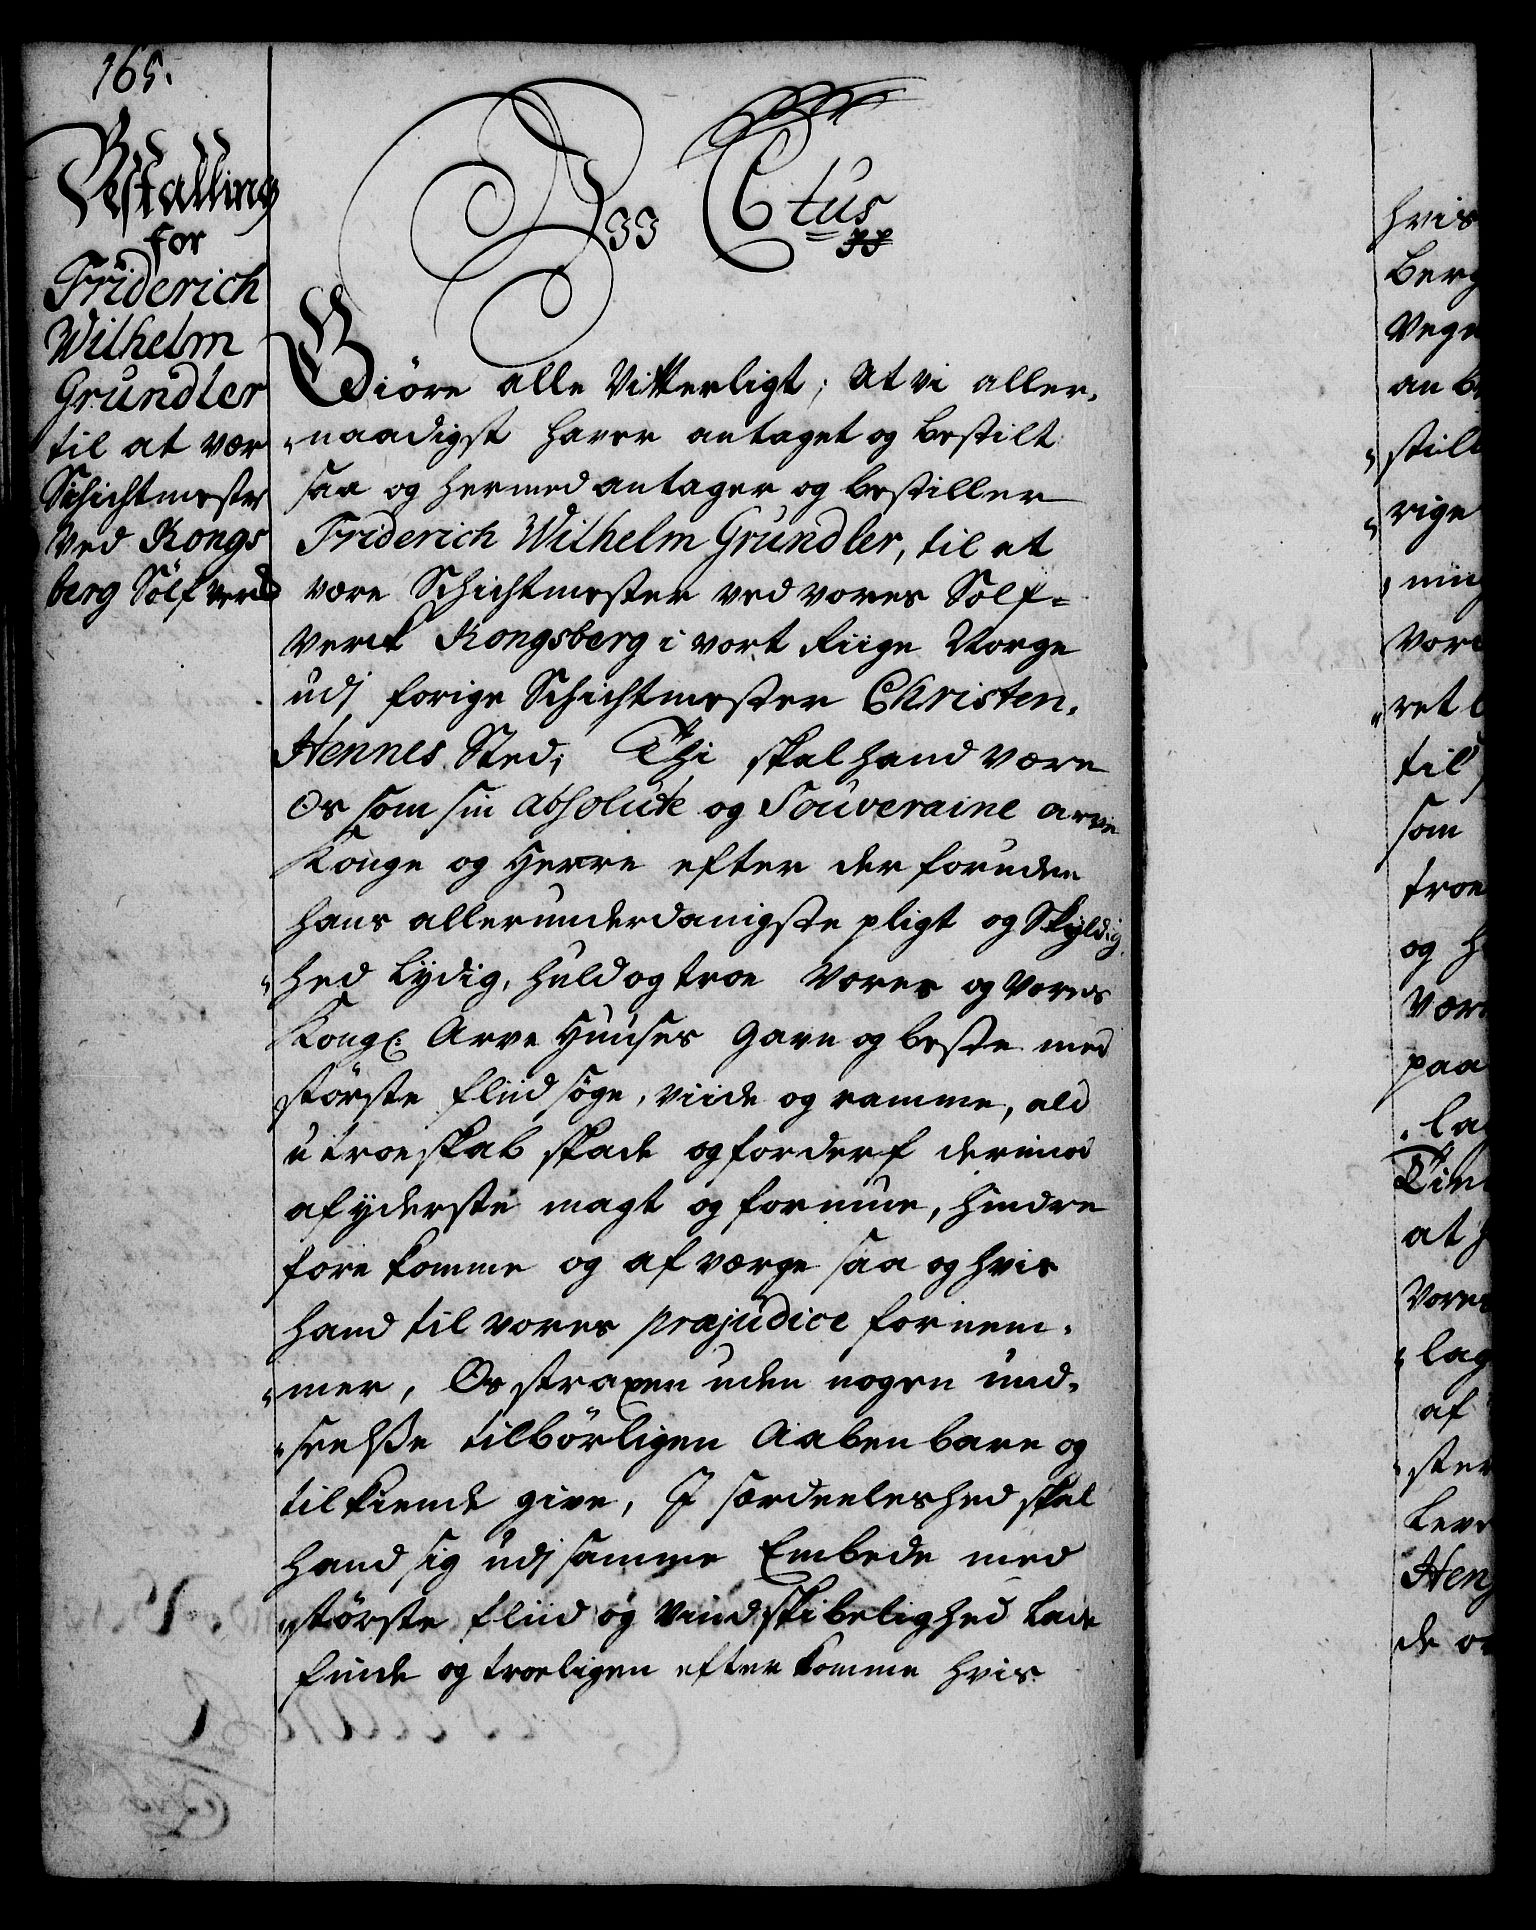 165.
Bestalling
for
Friderich
Wilhelm
Gründler
til at vær
Schichtmester
ved Kongs
berg Sölfverck
Ctus
Giöre alle Vitterligt; at vi aller,
naadigst haver antaget og bestilt
saa og hermed antager og bestiller
Friderich Wilhelm Gründler, til at
være Schichtmester ved vores Sölf=
verck Kongsberg i vort Riige Norge
udj forige Schichtmester Christen,
Hennes Sted; Thi skal hand være
Os som sin absolute og Souveraine arve
Konge og Herre efter der foruden
hans allerunderdanigste pligt og Skyldig,
hed Lydig, huld og troe Vores og Vores
Kongl: Arve Huuses Gavn og beste med
störste fliid söge, viide og ramme, ald
utroeskab skade og forderf derimod
af yderste magt og formue, hindre
fore komme og af værge saa og hvis
hand til vores præjudice fornem,
mer, Os straxen uden nogen und,
seelße tilbörligen Aabenbare og
tilkiende give, I særdeeleshed skal
hand sig udj samme Embede med
störste fliid og vindskibelighed Lade
finde og troeligen efterkomme hvis
hvis
Berg
Vegn
an B
stilt
rige
ret
til
som
troe
og h
Vær
paa
at
Vores
lag
af
ster
Hen